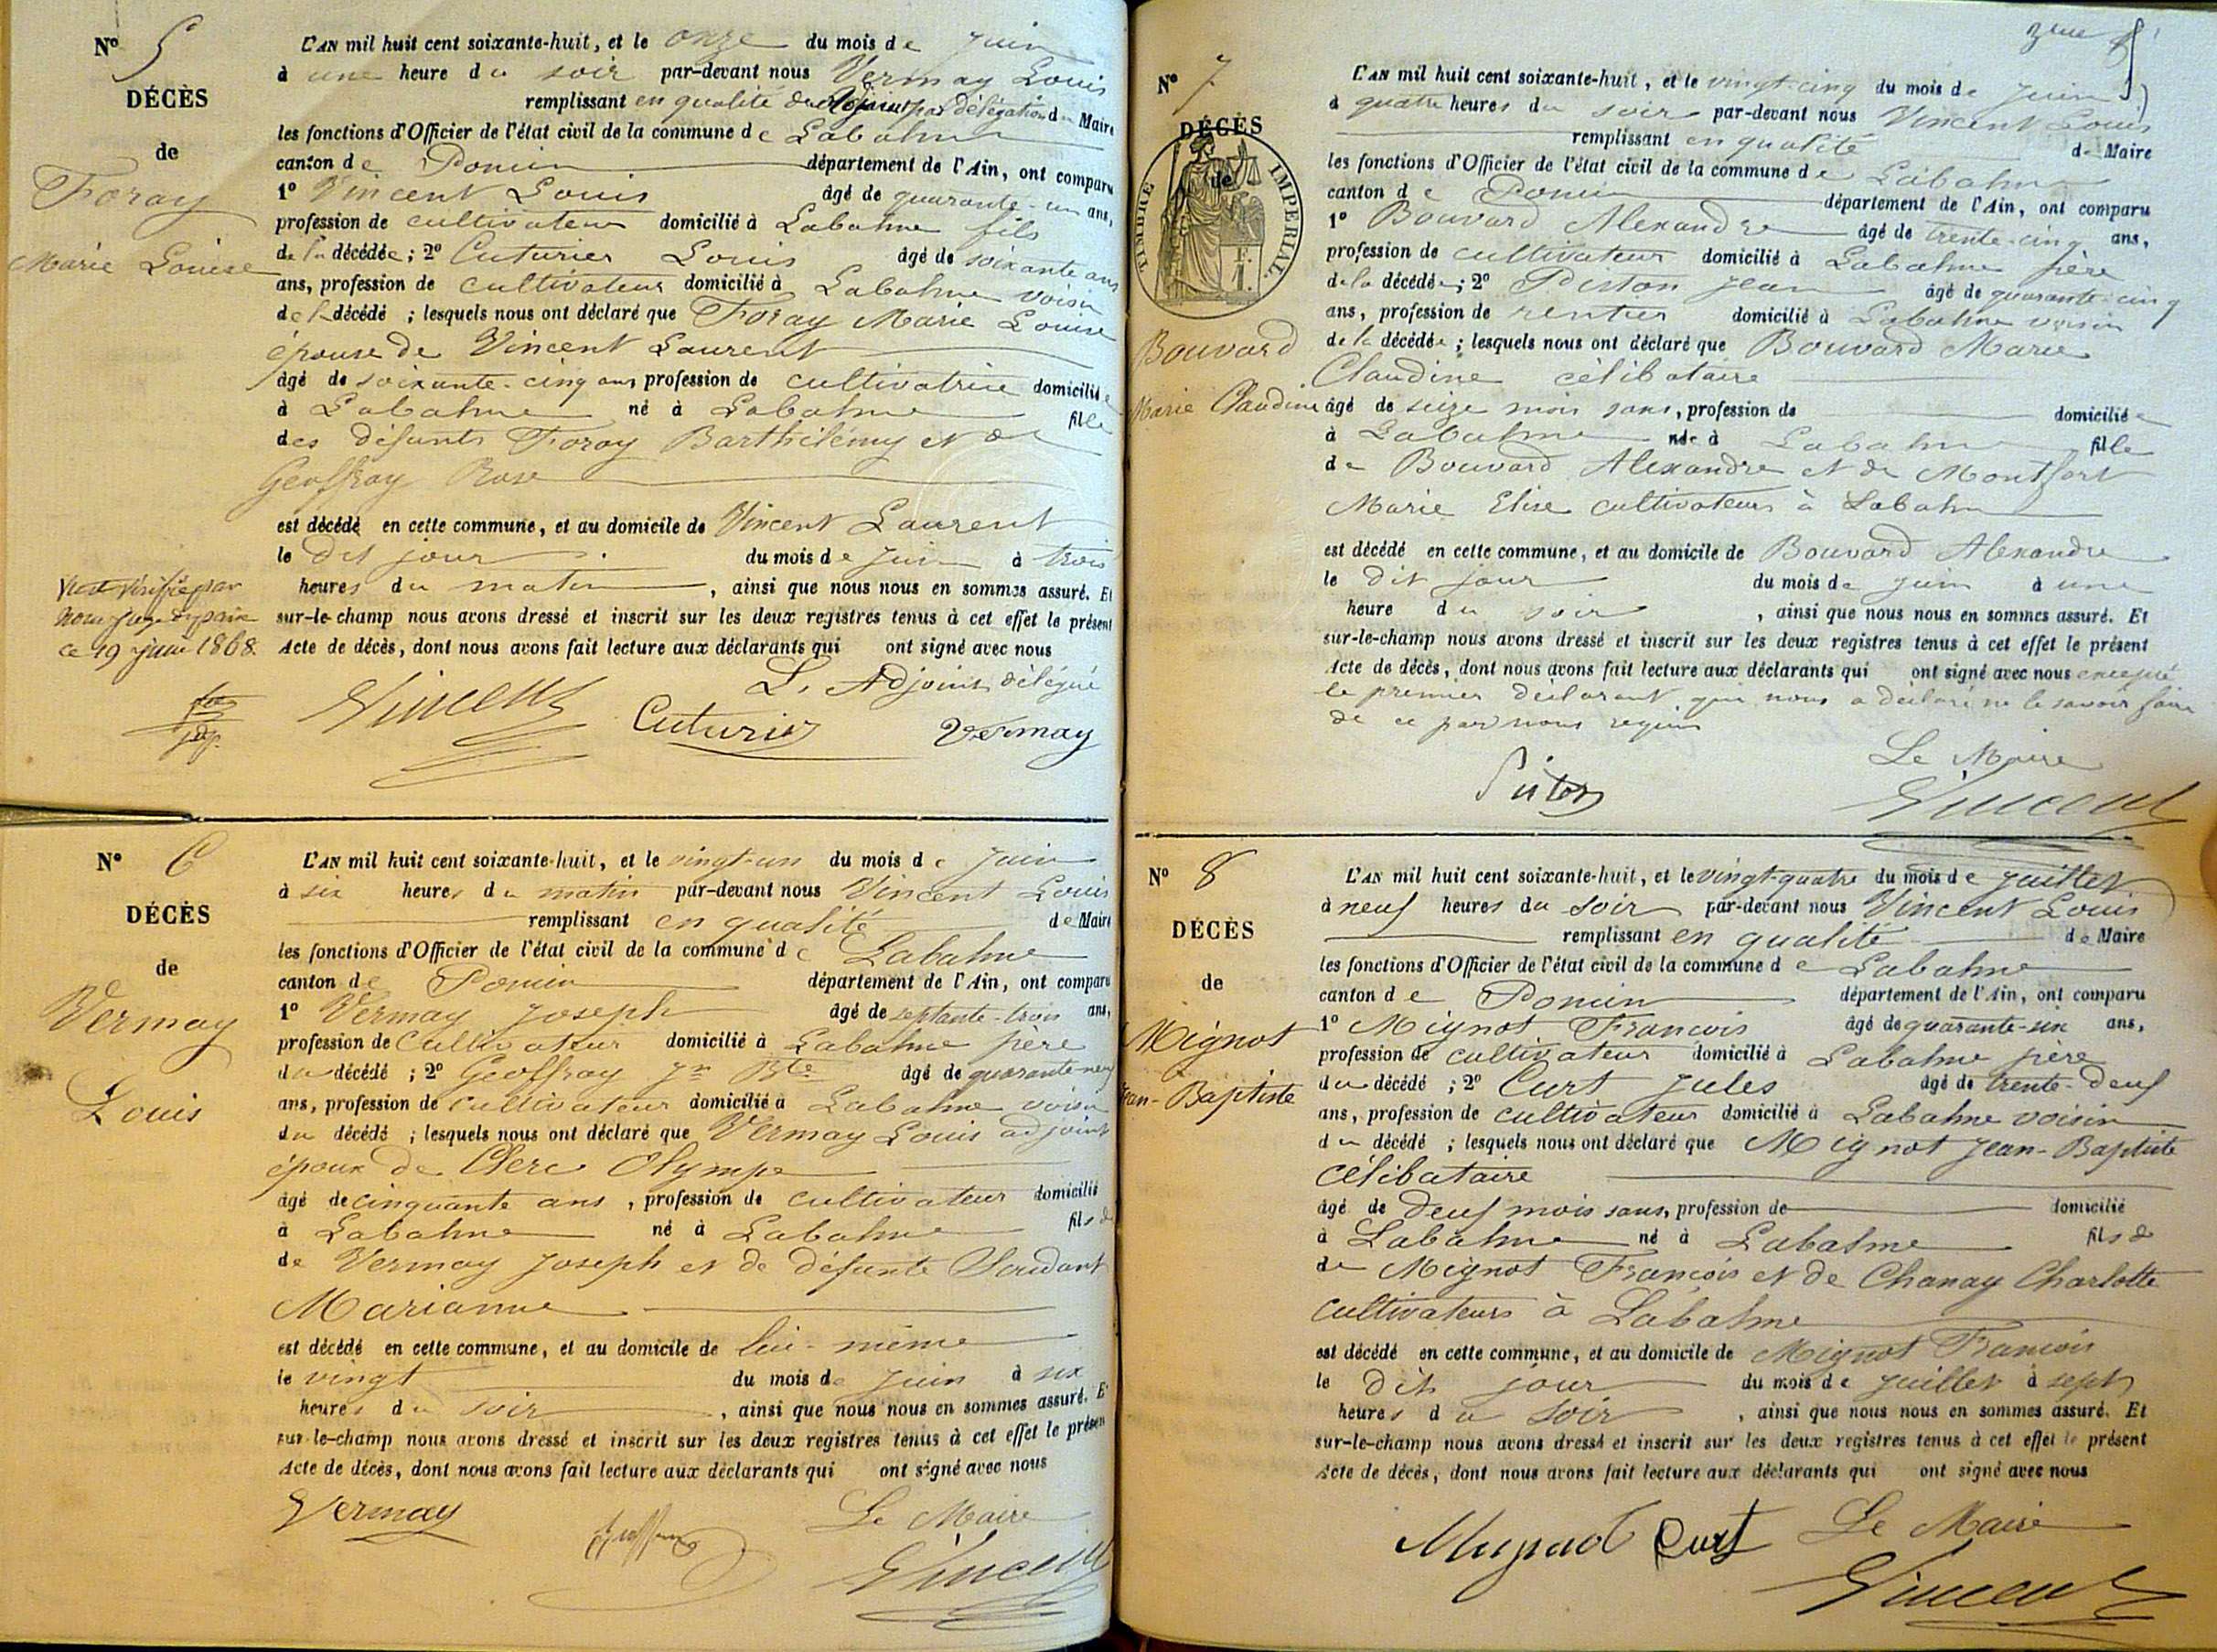 N° 5
DÉCÈS
de
Foray
Marie Louise
Vu et vérifié par
nous juge de paix
ce 19 juin 1868.
L'AN mil huit cent soixante-huit, et le onze du mois de juin
à une heure du soir par-devant nous Vermay Louis
remplissant en qualité d'adjoint par délégation de Maire
les fonctions d'Officier de l'état civil de la commune de Labalme
canton de Poncin département de l'Ain, ont comparu
1° Vincent Louis âgé de quarante-un ans,
profession de cultivateur domicilié à Labalme fils
de la décédée ; 2° Cuturier Louis âgé de soixante ans
ans, profession de cultivateur domicilié à Labalme voisin
de la décédé ; lesquels nous ont déclaré que Foray Marie Louise
épouse de Vincent Laurent
âgé de soixante-cinq ans, profession de cultivatrice domiciliée
à Labalme né à Labalme fille
des défunts Foray Barthélémy et de
Geoffray Rose
est décédé en cette commune, et au domicile de Vincent Laurent
le dit jour du mois de juin à trois
heures du matin, ainsi que nous nous en sommes assuré. Et
sur-le-champ nous avons dressé et inscrit sur les deux registres tenus à cet effet le présent
Acte de décès, dont nous avons fait lecture aux déclarants qui ont signé avec nous
L'Adjoint délégué
Vincent Cuturier Vermay
N° 6
DÉCÈS
de
Vermay
Louis
L'AN mil huit cent soixante-huit, et le vingt-un du mois de juin
à six heures du matin par-devant nous Vincent Louis
remplissant en qualité de Maire
les fonctions d'Officier de l'état civil de la commune de Labalme
canton de Poncin département de l'Ain, ont comparu
1° Vermay Joseph âgé de septante-trois ans,
profession de cultivateur domicilié à Labalme père
du décédé ; 2° Geoffray Jn Bte âgé de quarante-neuf
ans, profession de cultivateur domicilié à Labalme voisin
du décédé ; lesquels nous ont déclaré que Vermay Louis adjoint
époux de Clerc Olympe
âgé de cinquante ans, profession de cultivateur domicilié
à Labalme né à Labalme fils de
de Vermay Joseph et de défunte Soudant
Marianne
est décédé en cette commune, et au domicile de lui-même
le vingt du mois de juin à six
heures du soir, ainsi que nous nous en sommes assuré. Et
sur-le-champ nous avons dressé et inscrit sur les deux registres tenus à cet effet le présent
Acte de décès, dont nous avons fait lecture aux déclarants qui ont signé avec nous
Vermay Geoffray Le Maire
Vincent
N° 7
DÉCÈS
de
TIMBRE IMPERIAL
Bouvard
Marie Claudine
L'AN mil huit cent soixante-huit, et le vingt-cinq du mois de juin
à quatre heures du soir par-devant nous Vincent Louis
remplissant en qualité de Maire
les fonctions d'Officier de l'état civil de la commune de Labalme
canton de Poncin département de l'Ain, ont comparu
1° Bouvard Alexandre âgé de trente-cinq ans,
profession de cultivateur domicilié à Labalme père
de la décédée ; 2° Piston Jean âgé de quarante-cinq
ans, profession de rentier domicilié à Labalme voisin
de la décédée ; lesquels nous ont déclaré que Bouvard Marie
Claudine célibataire
âgé de seize mois sans, profession de domiciliée
à Labalme née à Labalme fille
de Bouvard Alexandre et de Montfort
Marie Elise cultivateurs à Labalme
est décédé en cette commune, et au domicile de Bouvard Alexandre
le dit jour du mois de juin à une
heure du soir, ainsi que nous nous en sommes assuré. Et
sur-le-champ nous avons dressé et inscrit sur les deux registres tenus à cet effet le présent
Acte de décès, dont nous avons fait lecture aux déclarants qui ont signé avec nous excepté
le premier déclarant qui nous a déclaré ne le savoir faire
de ce par nous requis
Le Maire
Piston Vincent
N° 8
DÉCÈS
de
Mignot
Jean-Baptiste
L'AN mil huit cent soixante-huit, et le vingt-quatre du mois de juillet
à neuf heures du soir par-devant nous Vincent Louis
remplissant en qualité de Maire
les fonctions d'Officier de l'état civil de la commune de Labalme
canton de Poncin département de l'Ain, ont comparu
1° Mignot François âgé de quarante-six ans,
profession de cultivateur domicilié à Labalme père
du décédé ; 2° Curt Jules âgé de trente-deux
ans, profession de cultivateur domicilié à Labalme voisin
du décédé ; lesquels nous ont déclaré que Mignot Jean-Baptiste
célibataire
âgé de deux mois sans, profession de domicilié
à Labalme né à Labalme fils de
de Mignot François et de Chanay Charlotte
cultivateurs à Labalme
est décédé en cette commune, et au domicile de Mignot François
le dit jour du mois de juillet à sept
heures du soir, ainsi que nous nous en sommes assuré. Et
sur-le-champ nous avons dressé et inscrit sur les deux registres tenus à cet effet le présent
Acte de décès, dont nous avons fait lecture aux déclarants qui ont signé avec nous
Mignot Curt Le Maire
Vincent